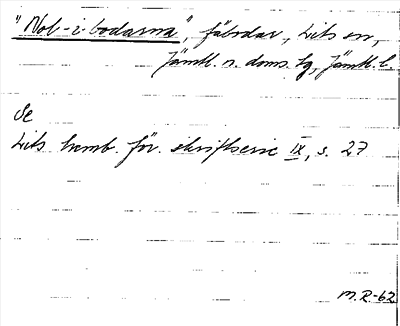 "Nol-i-bodarna", fäbodar, Lits sn,
Jämtl. n. doms. tg, Jämtl. l.
Se
Lits hemb. för. skriftserie IX, s. 27
M.R-62